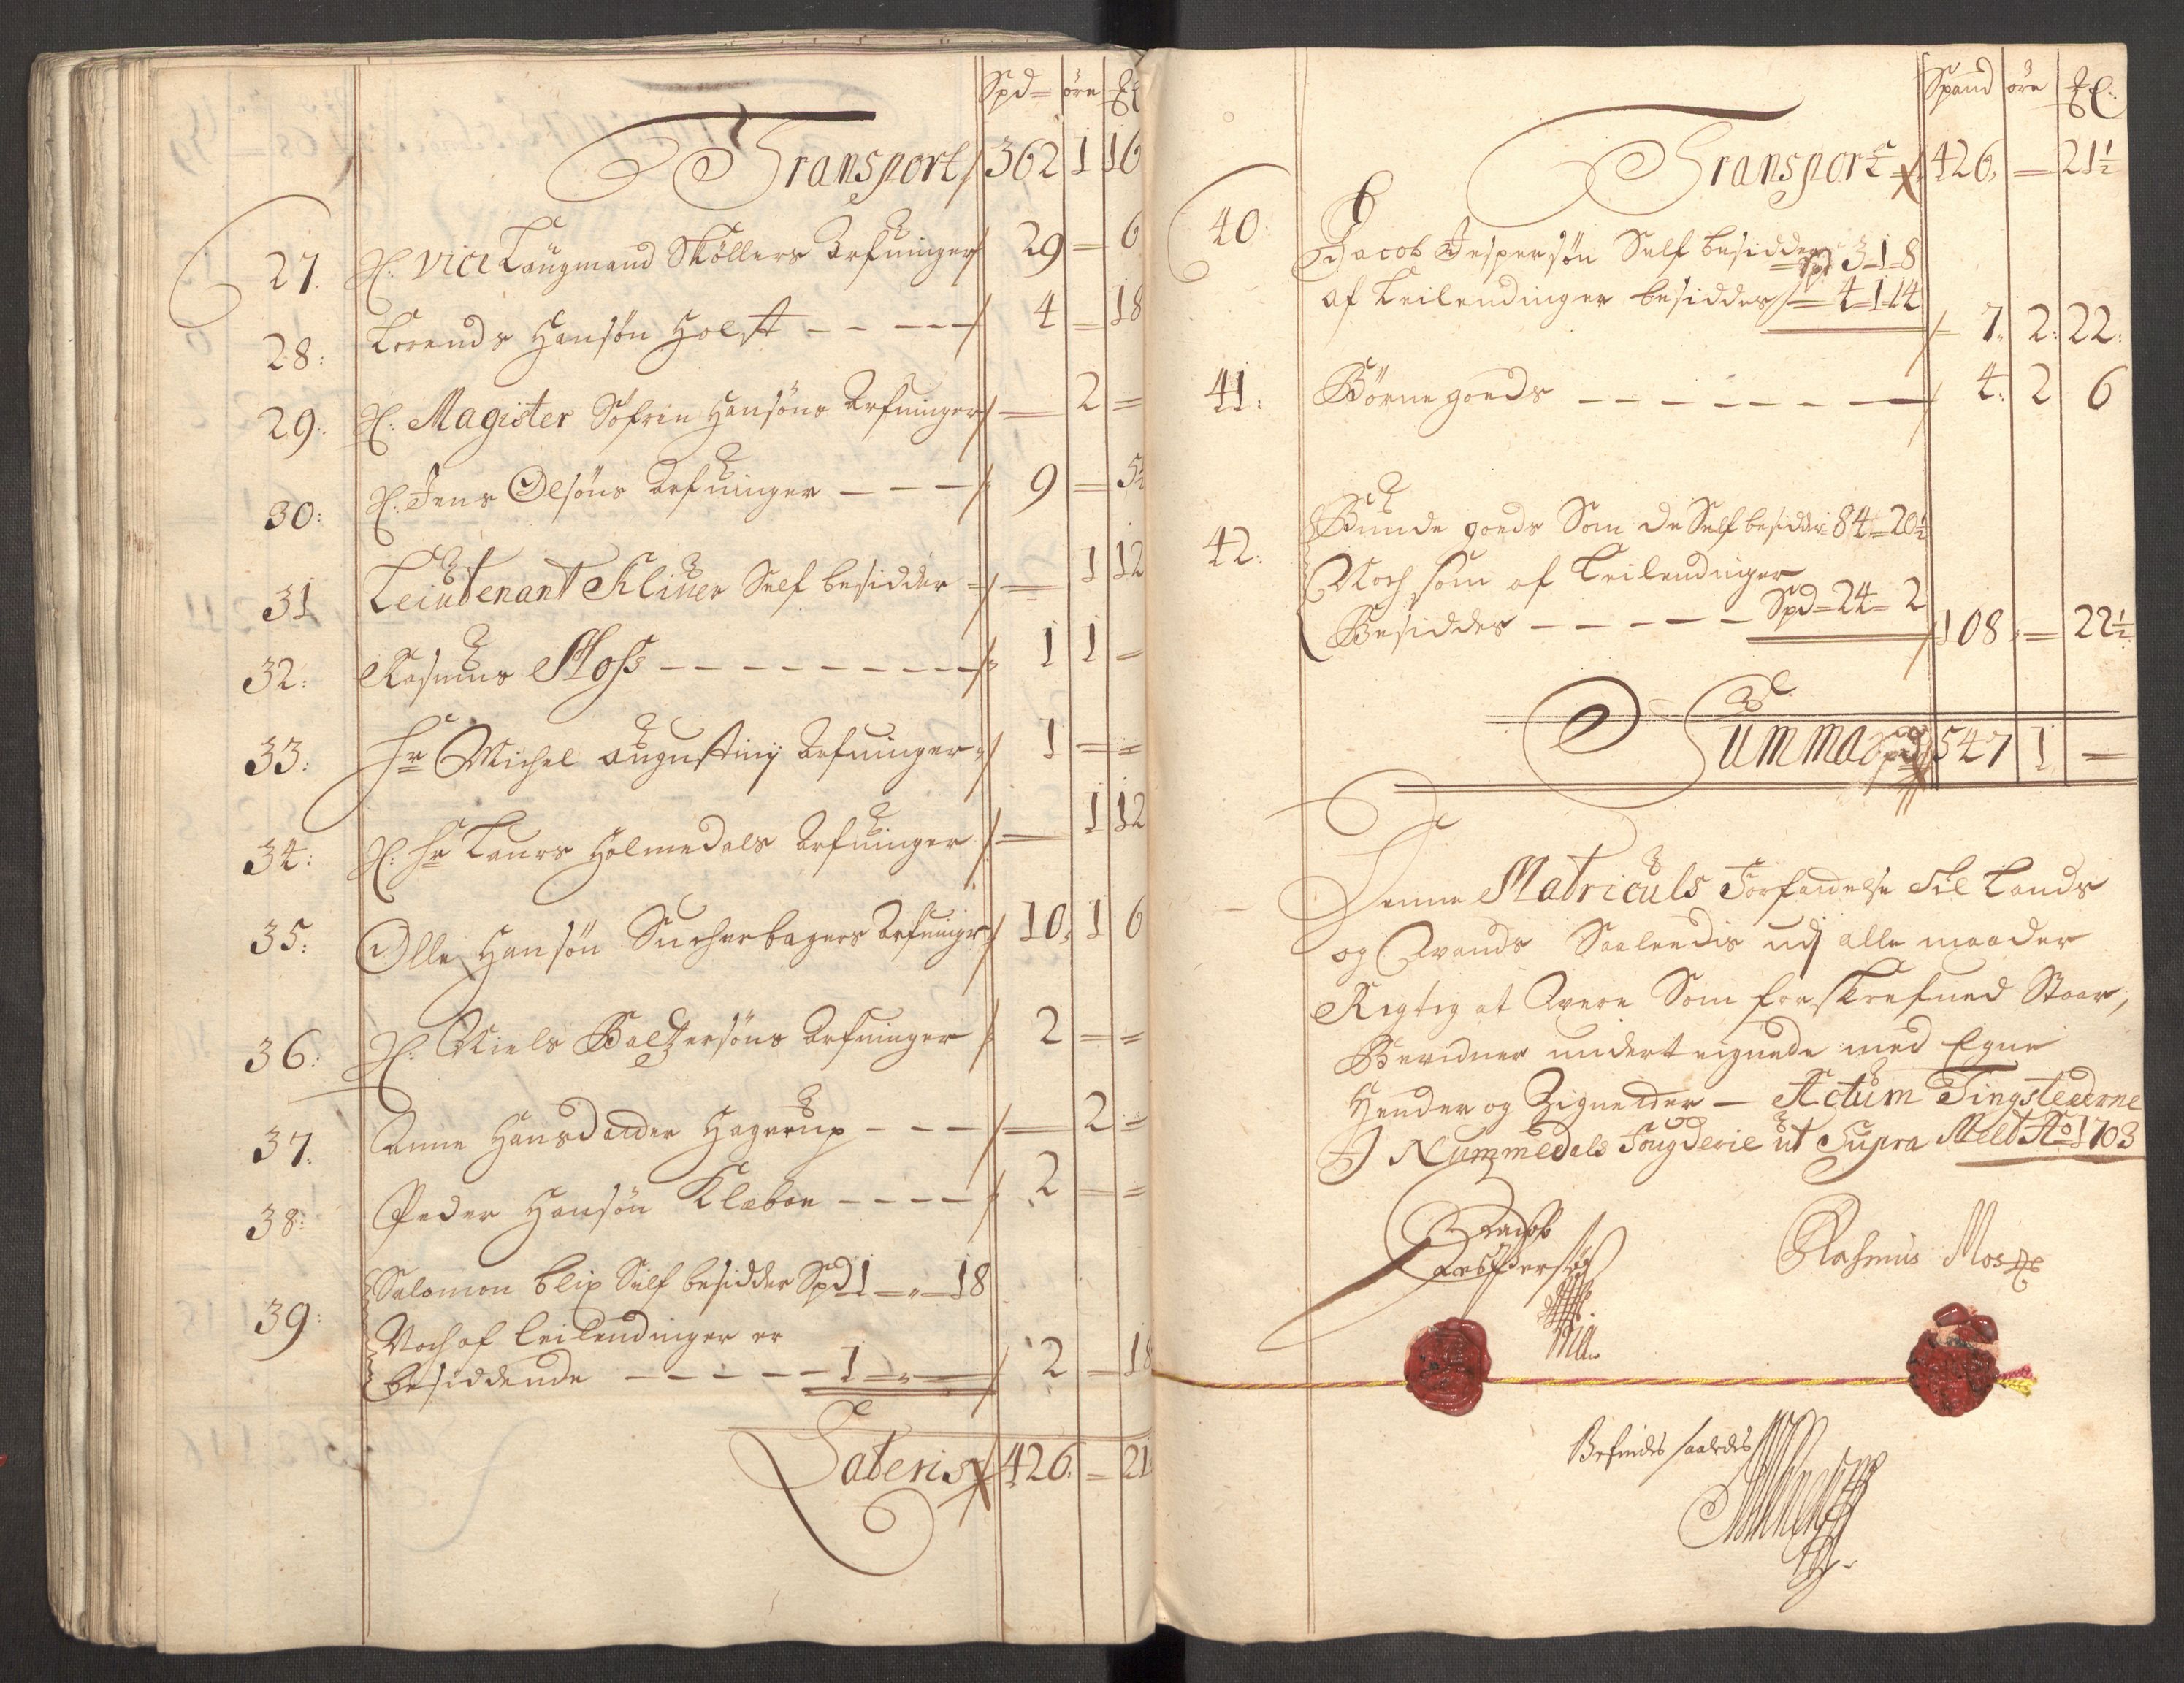 Spd øre
Transport 362 1 16
27. Sl. Vice Laugmand Møllers Arfuinger 29 = 6
28: Lorends Hansøn Holst - - - - 4 = 18
29: Sl. Magister Søfrin Hansøns Arfuinger — 2 =
30: Sl. Jens Olsøns Arfuinger - - - 9 = 5½
31 Leiutenant Kliuer Self besidder — 1 12
32: Rasmus Moss - - - - - - - - 1 1 =
33: Hr Michel Augustinij Arfuinger 1 = =
34: Sl. Hr Laurs Holmedals Arfuinger — 1 12
35: Olle Hansøn Sucherbagers Arfuinger 10: 1 6
36: Sl. Niels Baltzersøns Arfuinger 2 = =
37: Anne Hansdaatter Hagerup - - - — 2 =
38: Peder Hansøn Klæboe - - - - 2 = =
39: Salomon Blix Self besidder Spd 1 = 18
Noch af Leilendinger er
besiddende - - - - - 1 = = 2 = 18
Lateris 426: = 21
Spand øre
Transport 426, = 21½
40: Jacob Jespersøn Self besidder Spd 3 - 1 - 8
af Leilendinger besiddes = 4 - 1 - 14
7: 2: 22:
41: Børne goeds - - - - - - - 4: 2 6
42: Bunde goeds Som de Self besidder 84 = 20½
Noch som af Leilendinger
Besiddes - - - - - Spd = 24 = 2 108 = 22½
Summa Spd 547 1 =
Denne Matriculs Forfattelse til Lands
og Vands Saaleedis udj alle maader
Rigtig at Være Som forskrefued Staar,
Bevidner underteignede med Egne
Hender og Zigneter — Actum Tingstederne
J Nummedals Fougderie ut Supra Melt Ao 1703
Jacob
Jespersøn
Rasmus Moss
Befindes saaledes